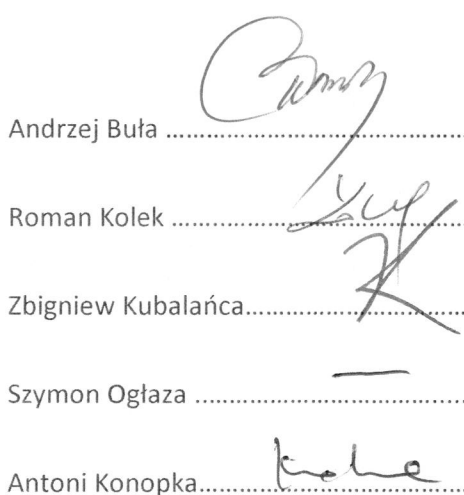 Andrzej Buła ........................................
Roman Kolek ........................................
Zbigniew Kubalańca..............................
Szymon Ogłaza .....................................
Antoni Konopka.....................................